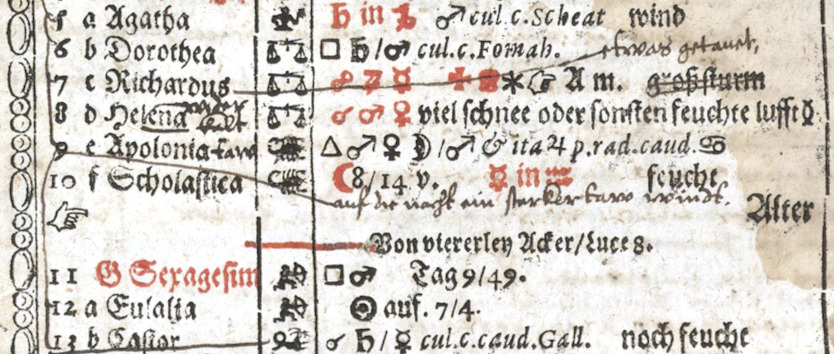 5 a Agatha ♄ in ♑ ♂ cul. c. Scheat wind
6 b Dorothea ♎ □ ♄ / ♂ cul. c. Fomah. etwas getauet,
7 c Richardus ♎ ☍ ♃ ☿ ✶ ☞ A m. großsturm
8 d Helena ♎ ☌ ♂ ♀ viel schnee oder sonsten feuchte lufft
9 e Apolonia ♏ △ ♂ ♀ ☽ / ♂ & ita ♃ p. rad. caud. ♋
10 f Scholastica ♏ ☾ 8/14 v. ☿ in ♒ feucht
☞ auf die nacht ein starker taw windt. Alter
Von viererley Acker / Luce 8.
11 G Sexagesim ♐ □ ♂ Tag 9/49.
12 a Eulalia ♐ ☉ auf. 7/4.
13 b Castor ☌ ♄ / ☿ cul. c. caud. Gall. noch feucht